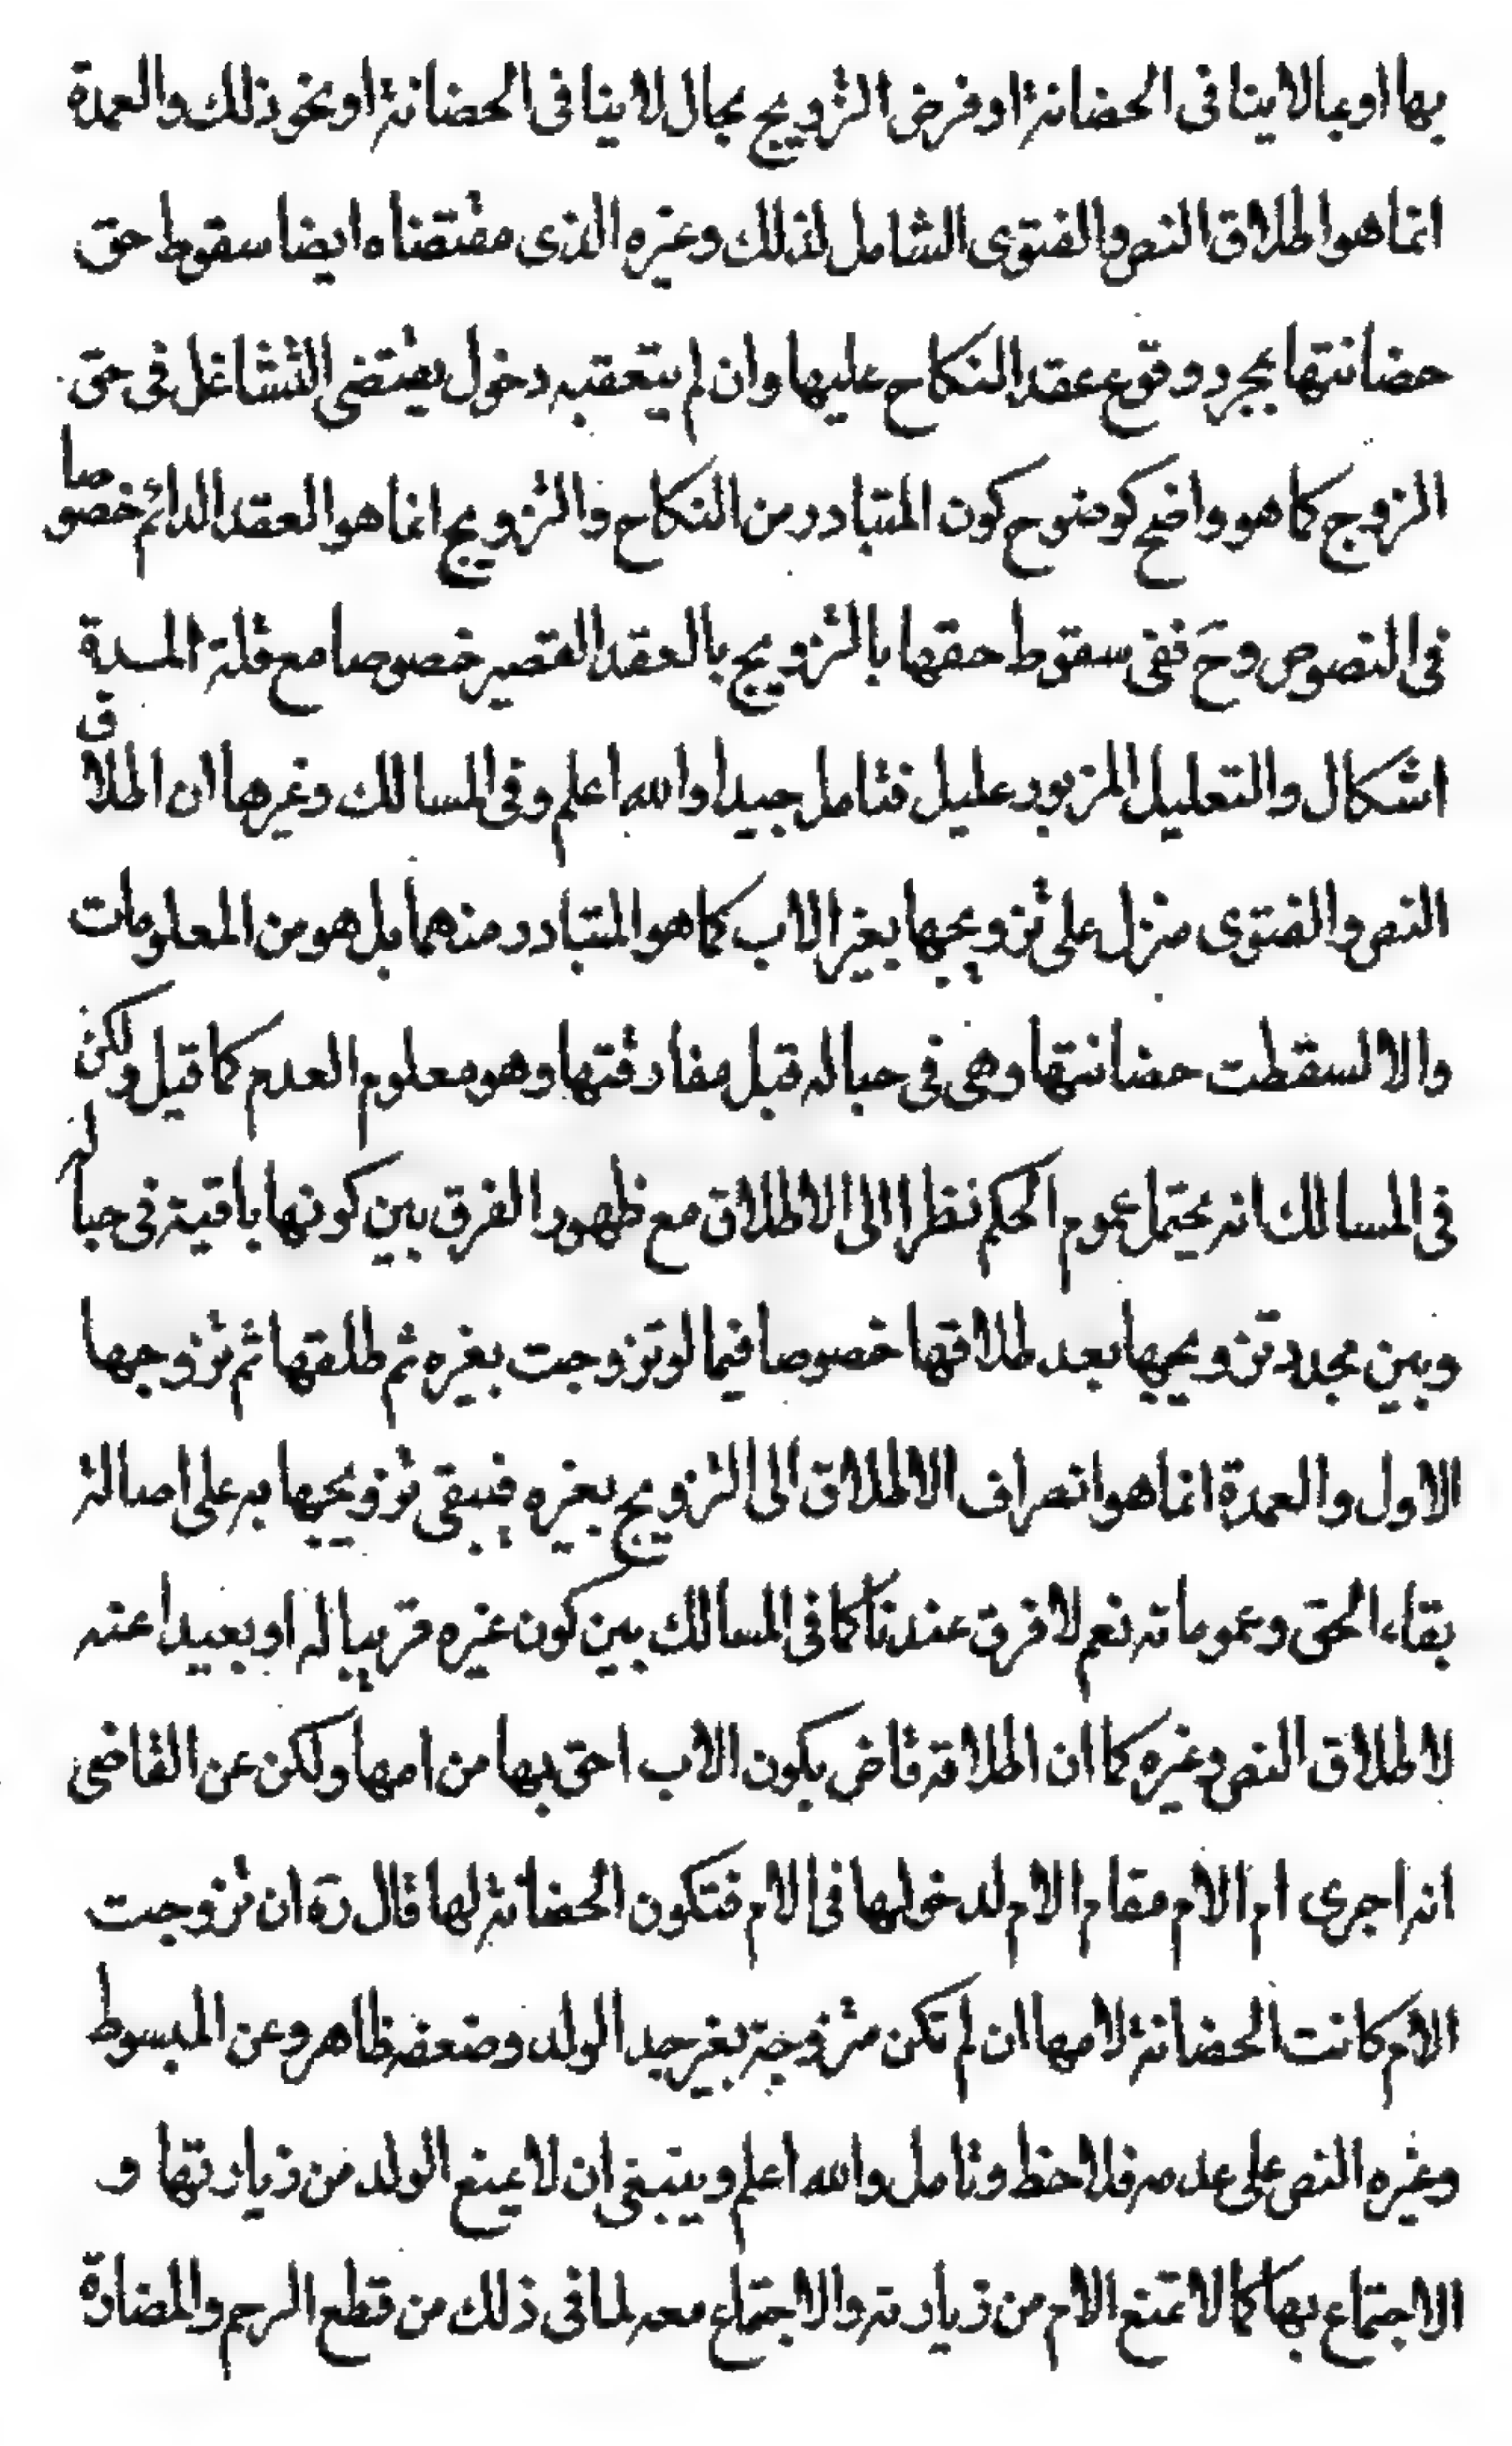 بها او بما لا ينافى الحضانة او فرض التزويج بحال لا ينافى الحضانة او نحو ذلك والعمدة
انما هو اطلاق النص والفتوى الشامل لذلك وغيره الذى مقتضاه ايضا سقوط حق
حضانتها بمجرد وقوع عقد النكاح عليها وان لم يتعقبه دخول يقتضى التشاغل فى حق
الزوج كما هو واضح كوضوح كون المتبادر من النكاح والتزويج انما هو العقد الدائم خصوصا
فى النصوص وح ففى سقوط حقها بالتزويج بالعقد القصير خصوصا مع قلة المدة
اشكال والتعليل المزبور عليل فتامل جيدا والله اعلم وفى المسالك وغيرها ان اطلاق
النص والفتوى منزل على تزويجها بغير الاب كما هو المتبادر منهما بل هو من المعلومات
والا لسقطت حضانتها وهى فى حباله قبل مفارقتها وهو معلوم العدم كما قيل ولكن
فى المسالك انه يحتمل عموم الحكم نظرا الى الاطلاق مع ظهور الفرق بين كونها باقية فى حباله
وبين مجدد تزويجها بعد طلاقها خصوصا فيما لو تزوجت بغيره ثم طلقها ثم تزوجها
الاول والعمدة انما هو انصراف الاطلاق الى التزويج بغيره فيبقى تزويجها به على اصالة
بقاء الحق وعموماته نعم لا فرق عندنا كما فى المسالك بين كون غيره قريبا له او بعيدا عنه
لاطلاق النص وغيره كما ان اطلاقه قاض بكون الاب احق بها من امها ولكن عن القاضى
انه اجرى ام الام مقام الام لدخولها فى الام فتكون الحضانة لها قال ره ان تزوجت
الام كانت الحضانة لامها ان لم تكن متزوجة بغير جد الولد وضعفه ظاهر وعن المبسوط
وغيره النص على عدمه فلاحظ وتامل والله اعلم وينبغى ان لا يمنع الولد من زيارتها و
الاجتماع بها كما لا تمنع الام من زيارته والاجتماع معه لما فى ذلك من قطع الرحم والمضارة